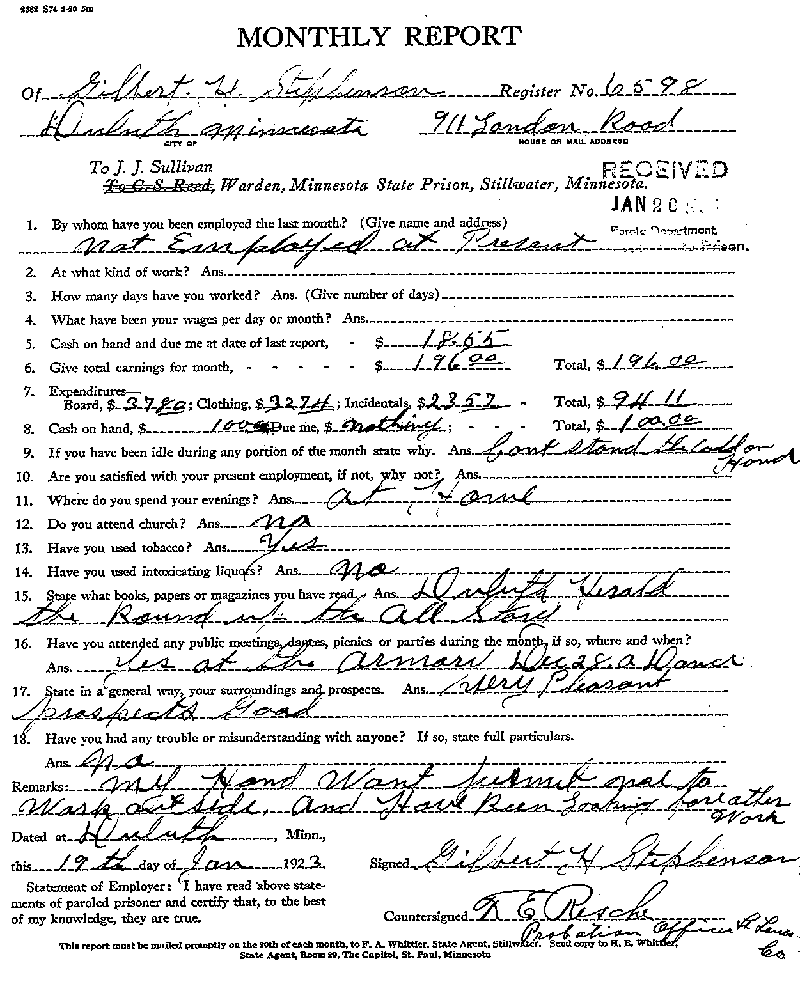 2382 S74 2-20 5m
MONTHLY REPORT
Of Gilbert. H. Stephenson Register No. 6598
Duluth Minnesota 911 London Road
CITY OF HOUSE OR MAIL ADDRESS
To J. J. Sullivan
To C. S. Reed, Warden, Minnesota State Prison, Stillwater, Minnesota.
RECEIVED
JAN 20
Parole Department
Prison.
1. By whom have you been employed the last month? (Give name and address)
Not Employed at Present
2. At what kind of work? Ans.
3. How many days have you worked? Ans. (Give number of days)
4. What have been your wages per day or month? Ans.
5. Cash on hand and due me at date of last report, - $ 18.55
6. Give total earnings for month, - - - - - $ 196 00 Total, $ 196.00
7. Expenditures—
Board, $ 3780; Clothing, $ 3274; Incidentals, $ 2357 - Total, $ 94 11
8. Cash on hand, $ 10000 Due me, $ nothing; - - - Total, $ 100.00
9. If you have been idle during any portion of the month state why. Ans. Cont stand the cold on
Hand
10. Are you satisfied with your present employment, if not, why not? Ans.
11. Where do you spend your evenings? Ans. at Home
12. Do you attend church? Ans. no
13. Have you used tobacco? Ans. Yes
14. Have you used intoxicating liquors? Ans. No
15. State what books, papers or magazines you have read. Ans. Duluth Herald
the Round up the All Story
16. Have you attended any public meetings, dances, picnics or parties during the month, if so, where and when?
Ans. Yes at the Armari Dec 28. a Dance
17. State in a general way, your surroundings and prospects. Ans. Very Pleasant
prospects Good
18. Have you had any trouble or misunderstanding with anyone? If so, state full particulars.
Ans. No
Remarks: My Hand Want permit me to
Work outside. And Have Been Looking for other
Work
Dated at Duluth, Minn.,
this 19th day of Jan 1923 Signed Gilbert H Stephenson
Statement of Employer: I have read above state-
ments of paroled prisoner and certify that, to the best
of my knowledge, they are true.
Countersigned R E Resche
Probation Officer St Louis
Co
This report must be mailed promptly on the 20th of each month, to F. A. Whittier, State Agent, Stillwater. Send copy to H. E. Whittier,
State Agent, Room 29, The Capitol, St. Paul, Minnesota